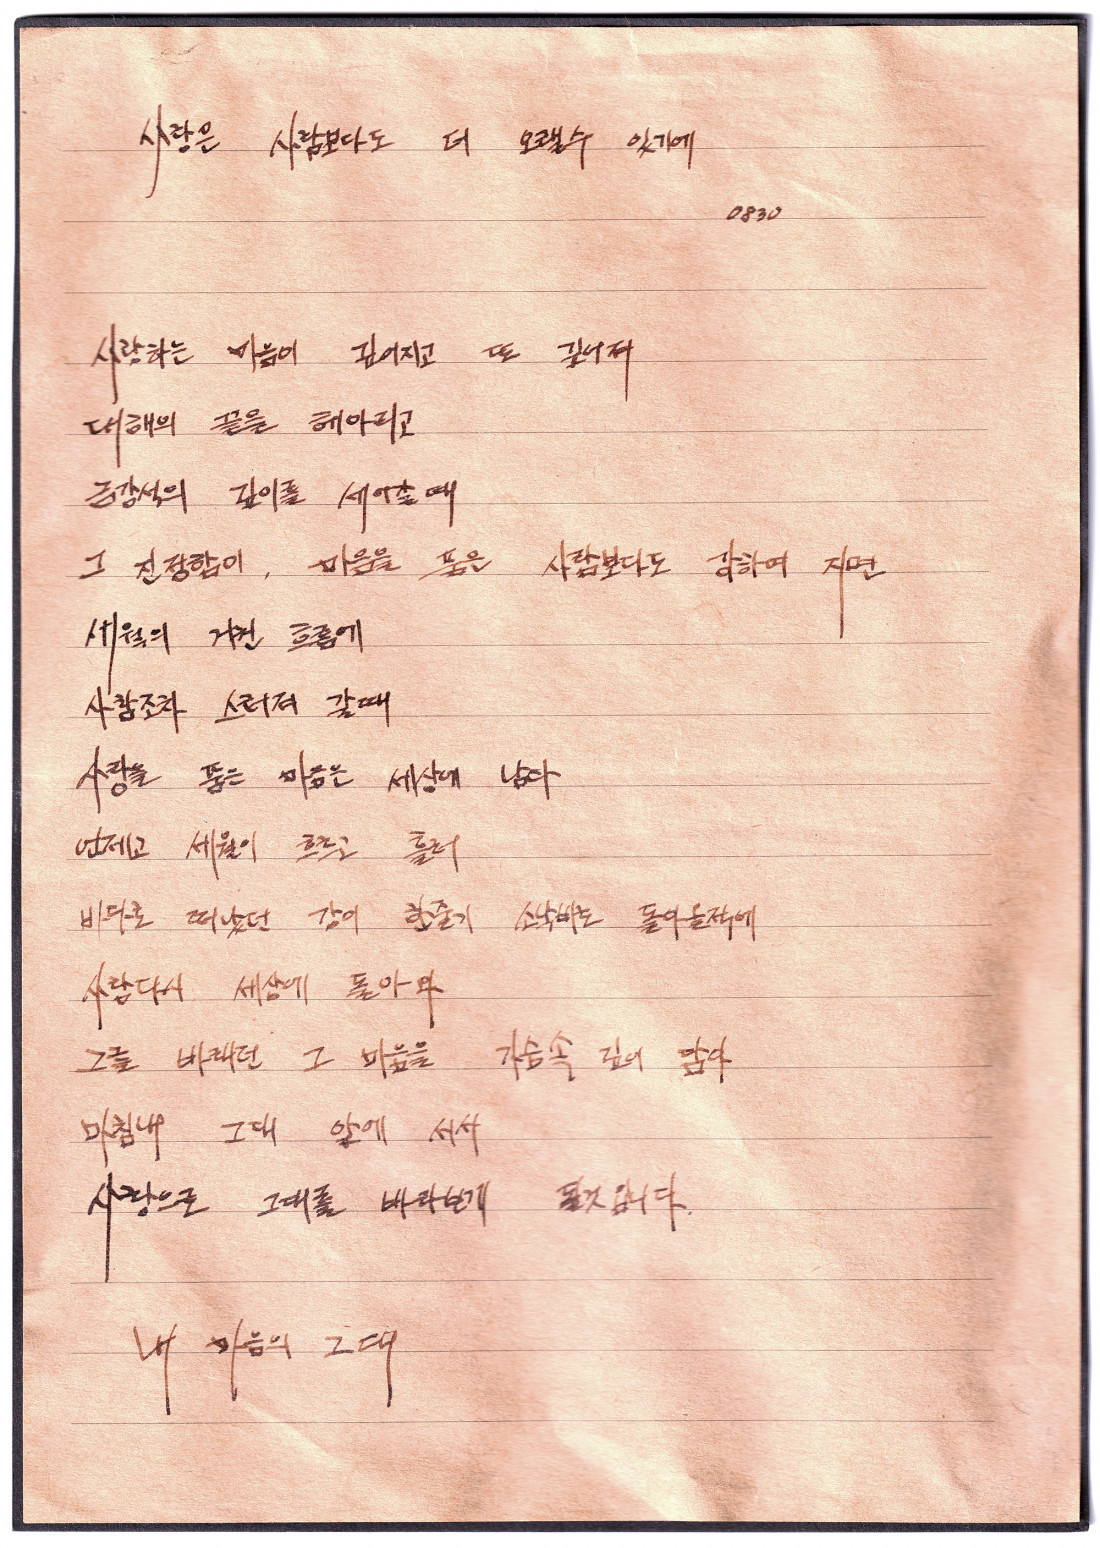 사랑은 사람보다도 더 오랠수 있기에
0830
사랑하는 마음이 깊어지고 또 깊어져
대해의 끝을 헤아리고
금강석의 깊이를 세어갈때
그 진정함이, 마음을 품은 사람보다도 강하여 지면
세월의 거친 흐름에
사람조차 스러져 갈때
사랑을 품은 마음은 세상에 남다
언제고 세월이 흐르고 흘러
바다로 떠났던 강이 한줄기 소낙비로 돌아올적에
사람다시 세상에 돌아와
그를 바래던 그 마음을 가슴속 깊이 담아
마침내 그대 앞에 서서
사랑으로 그대를 바라보게 될것입니다.
내 마음의 그대